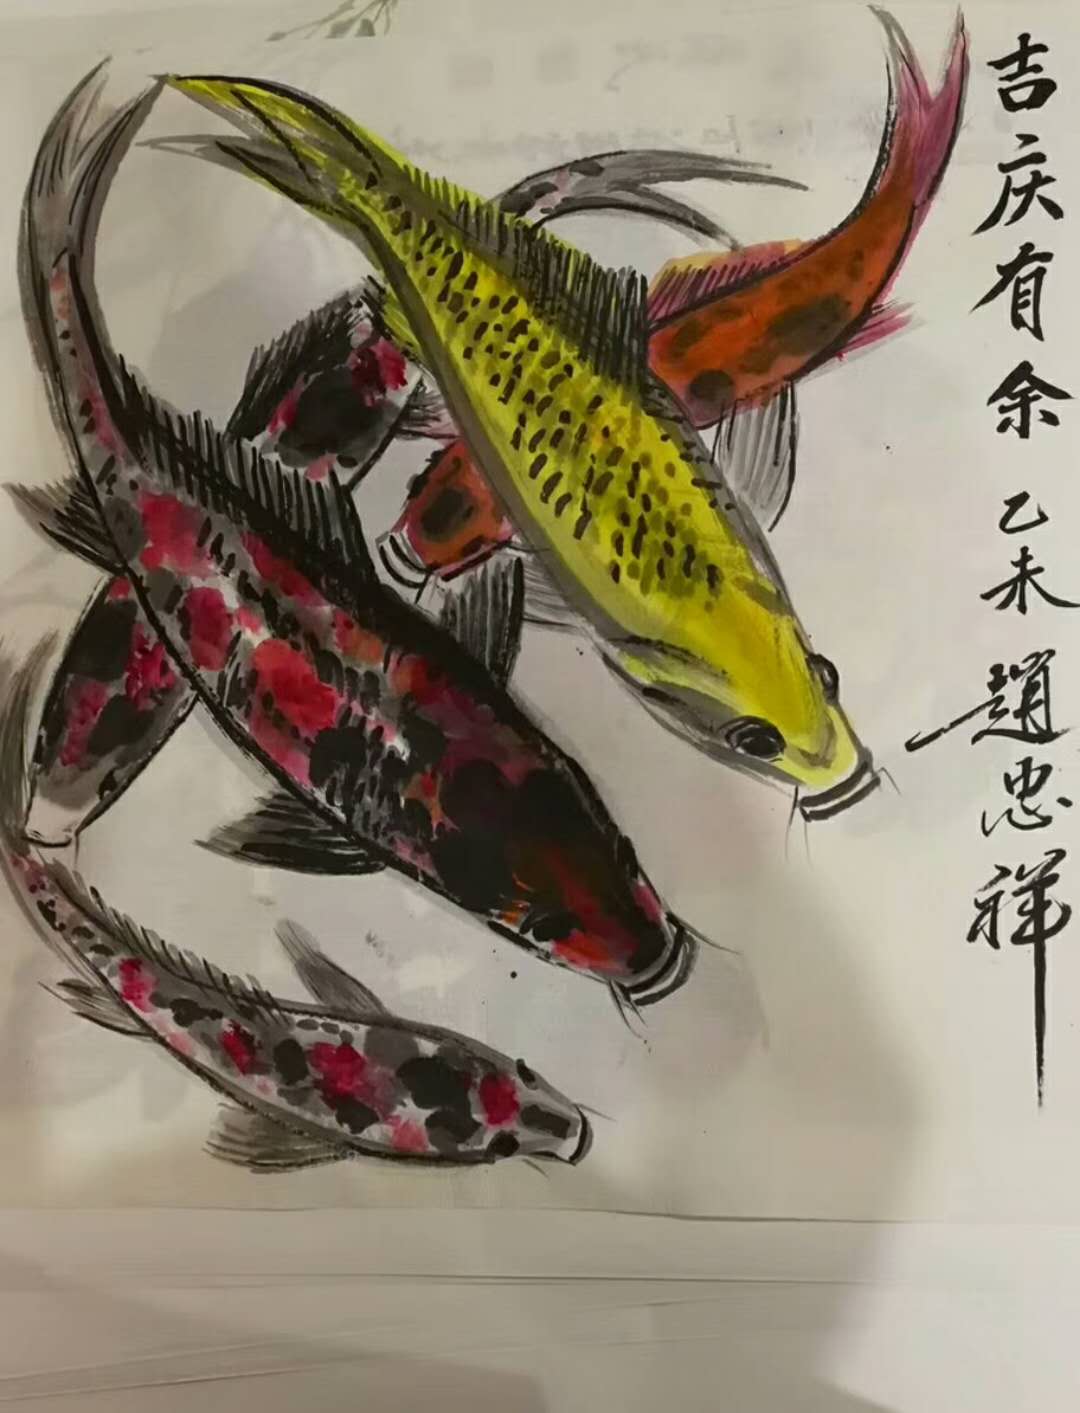 吉庆有余 乙未 趙忠祥